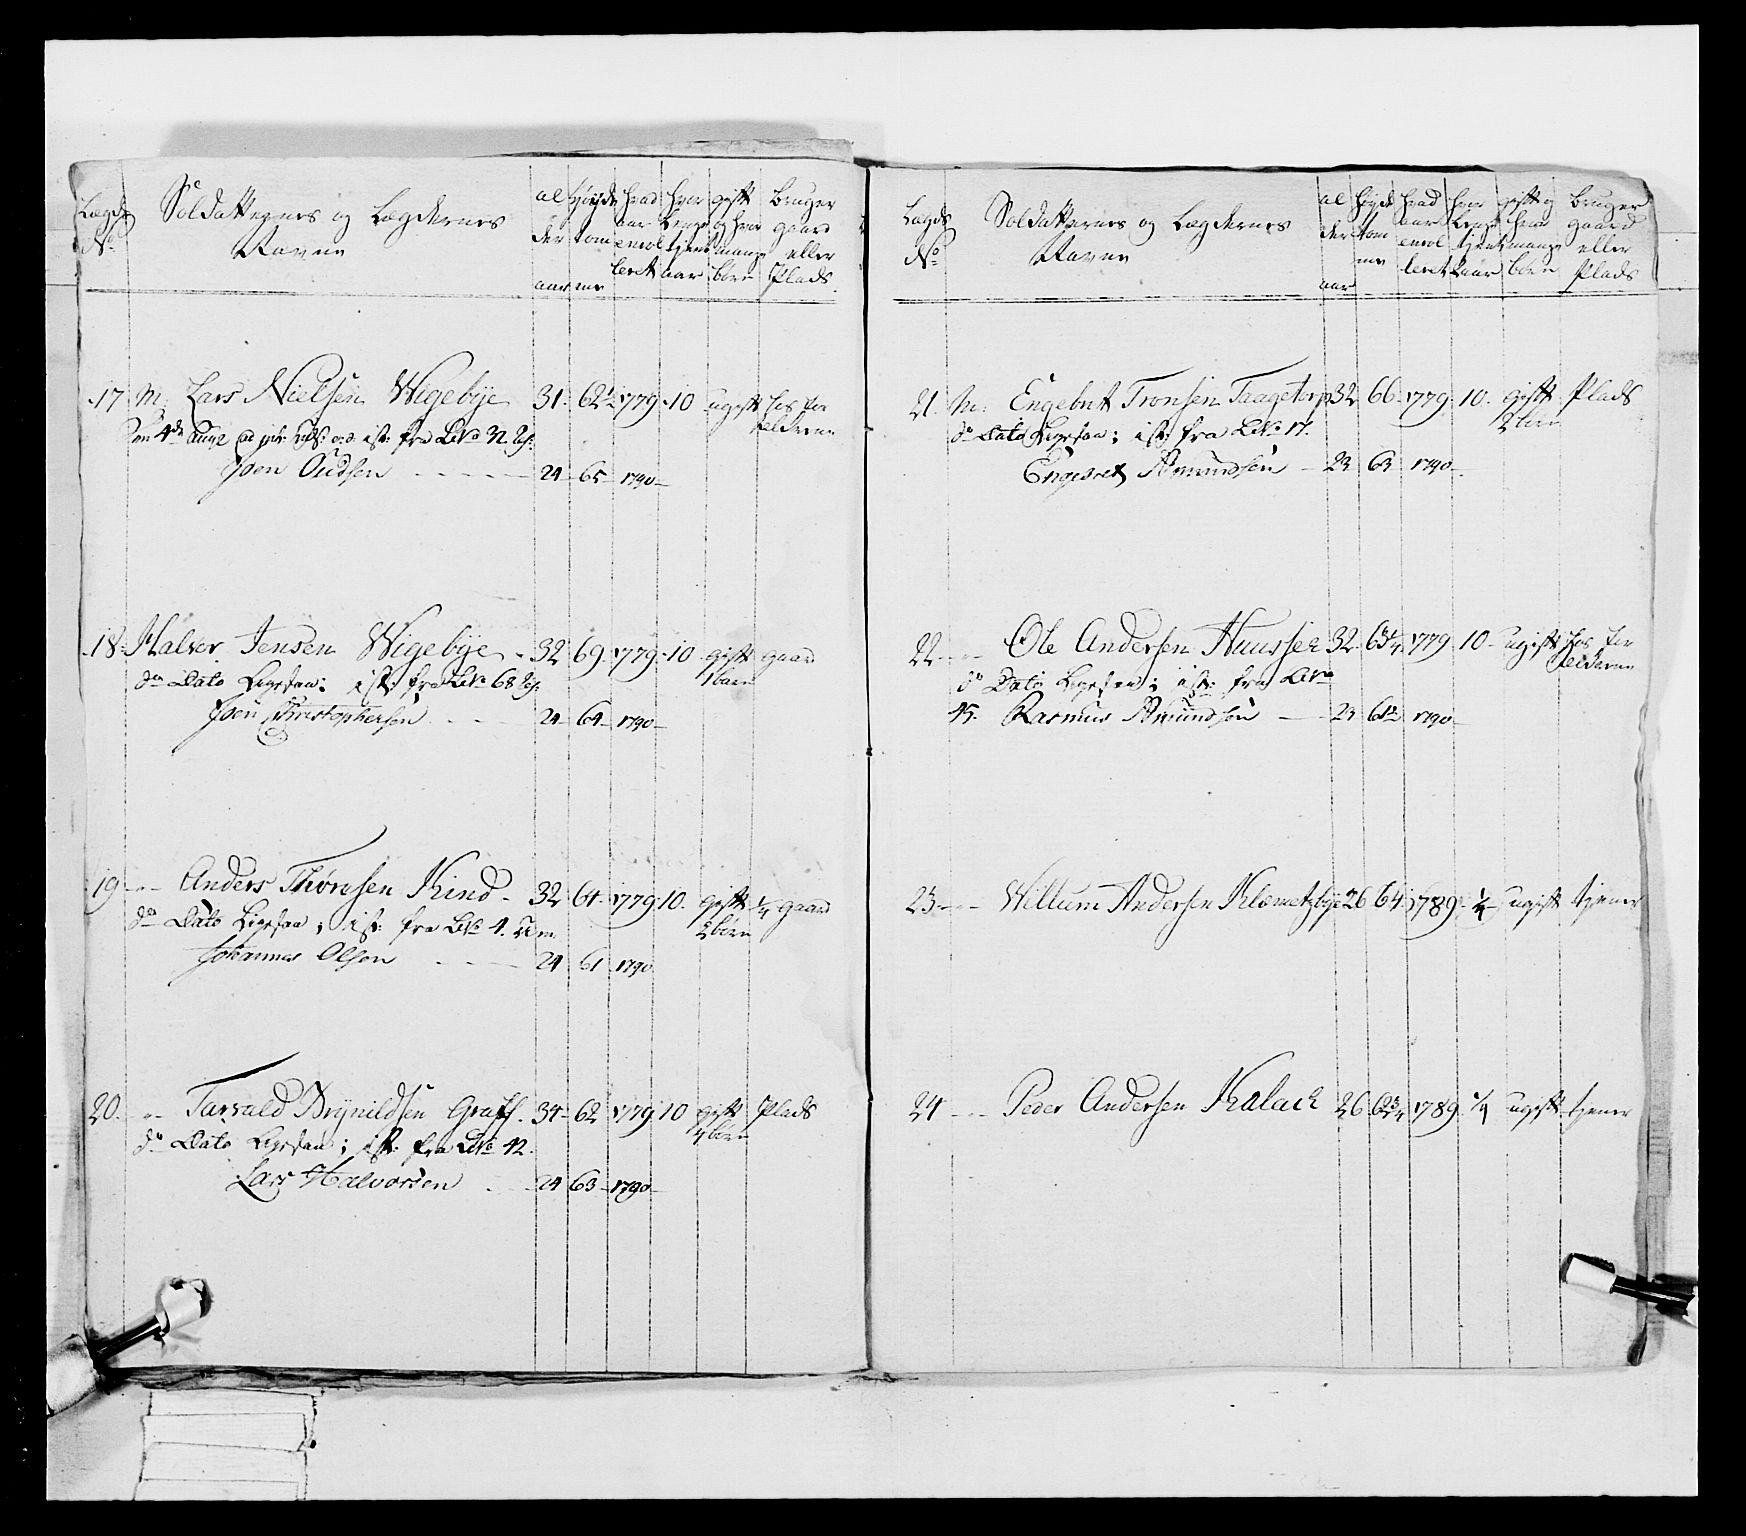 Lægds No
Soldatternes og Lægdernes Navne
al der aar
Høyde tom mer
hvad aar enrol leret
hvor Lenge tient aar
gift og hvor mange børn
bruger gaard eller Plads
17 M: Lars Nielsen Wigebye 31. 62½ 1779 10 ugift hos For ælderne
ist: fra Lno 32
Joen Gudsen 24 65 1790
18 Halvor Jensen Wigebye 32 69 1779 10 gift 1 barn gaard
do Dato ist: fra Lno 68
Joen Christophersen 24 64 1790
19 Anders Thoresen Kind 32 64 1779 10 gift 2 børn ¼ gaard
do Dato ist: fra Lno 4.
Johannes Olsen 24 61 1790
20. Tarvald Brynildsen Graff 34 62 1779 10 gift 4 børn Plads
do Dato ist: fra Lno 42.
Lars Halvorsen 24 63 1790
Lægds No
Soldatternes og Lægdernes Navne
al der aar
Høyde tom mer
hvad aar enrol leret
hvor Lenge tient aar
gift og hvor mange børn
bruger gaard eller Plads
21 M: Engebret Tronsen Taagetorp 32 66 1779 10. gift 2 børn Plads
do Dato ist: fra Lno 17.
Engebret Amundsen 23 63 1790
22 Ole Andersen Huusser 32 63¼ 1779 10 ugift hos For ælderne
do Dato ist: fra Lno
45. Rasmus Amundsen 23 61½ 1790
23 Willum Andersen Klometzbye 26 64 1789 ¼ ugift tjener
24 Peder Andersen Kalach 26 62¾ 1789 ¼ ugift tjener